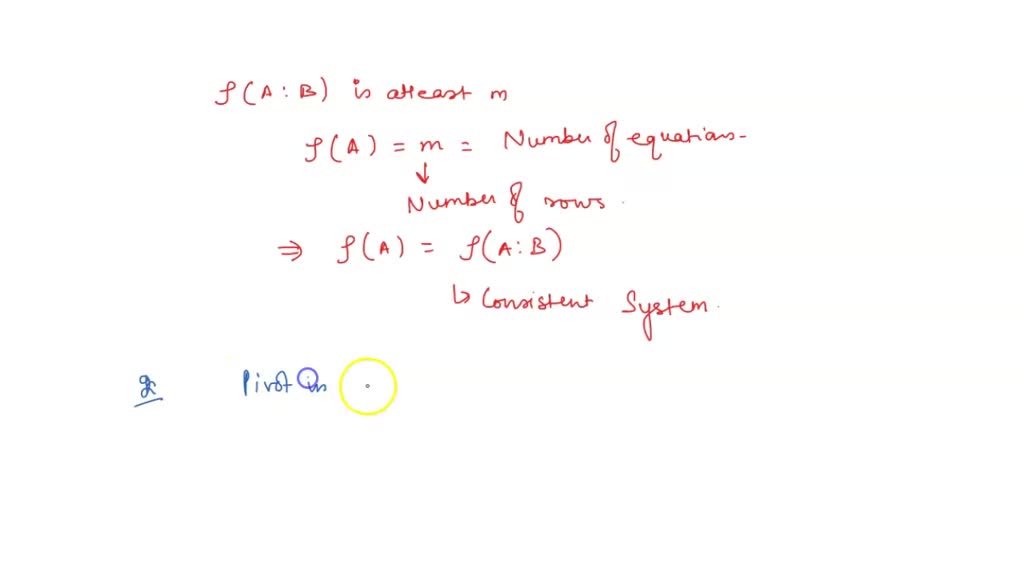 ρ(A : B) is atleast m
ρ(A) = m = Number of equations-
↓
Number of rows.
⇒ ρ(A) = ρ(A : B)
↳ Consistent System.
Pivot in